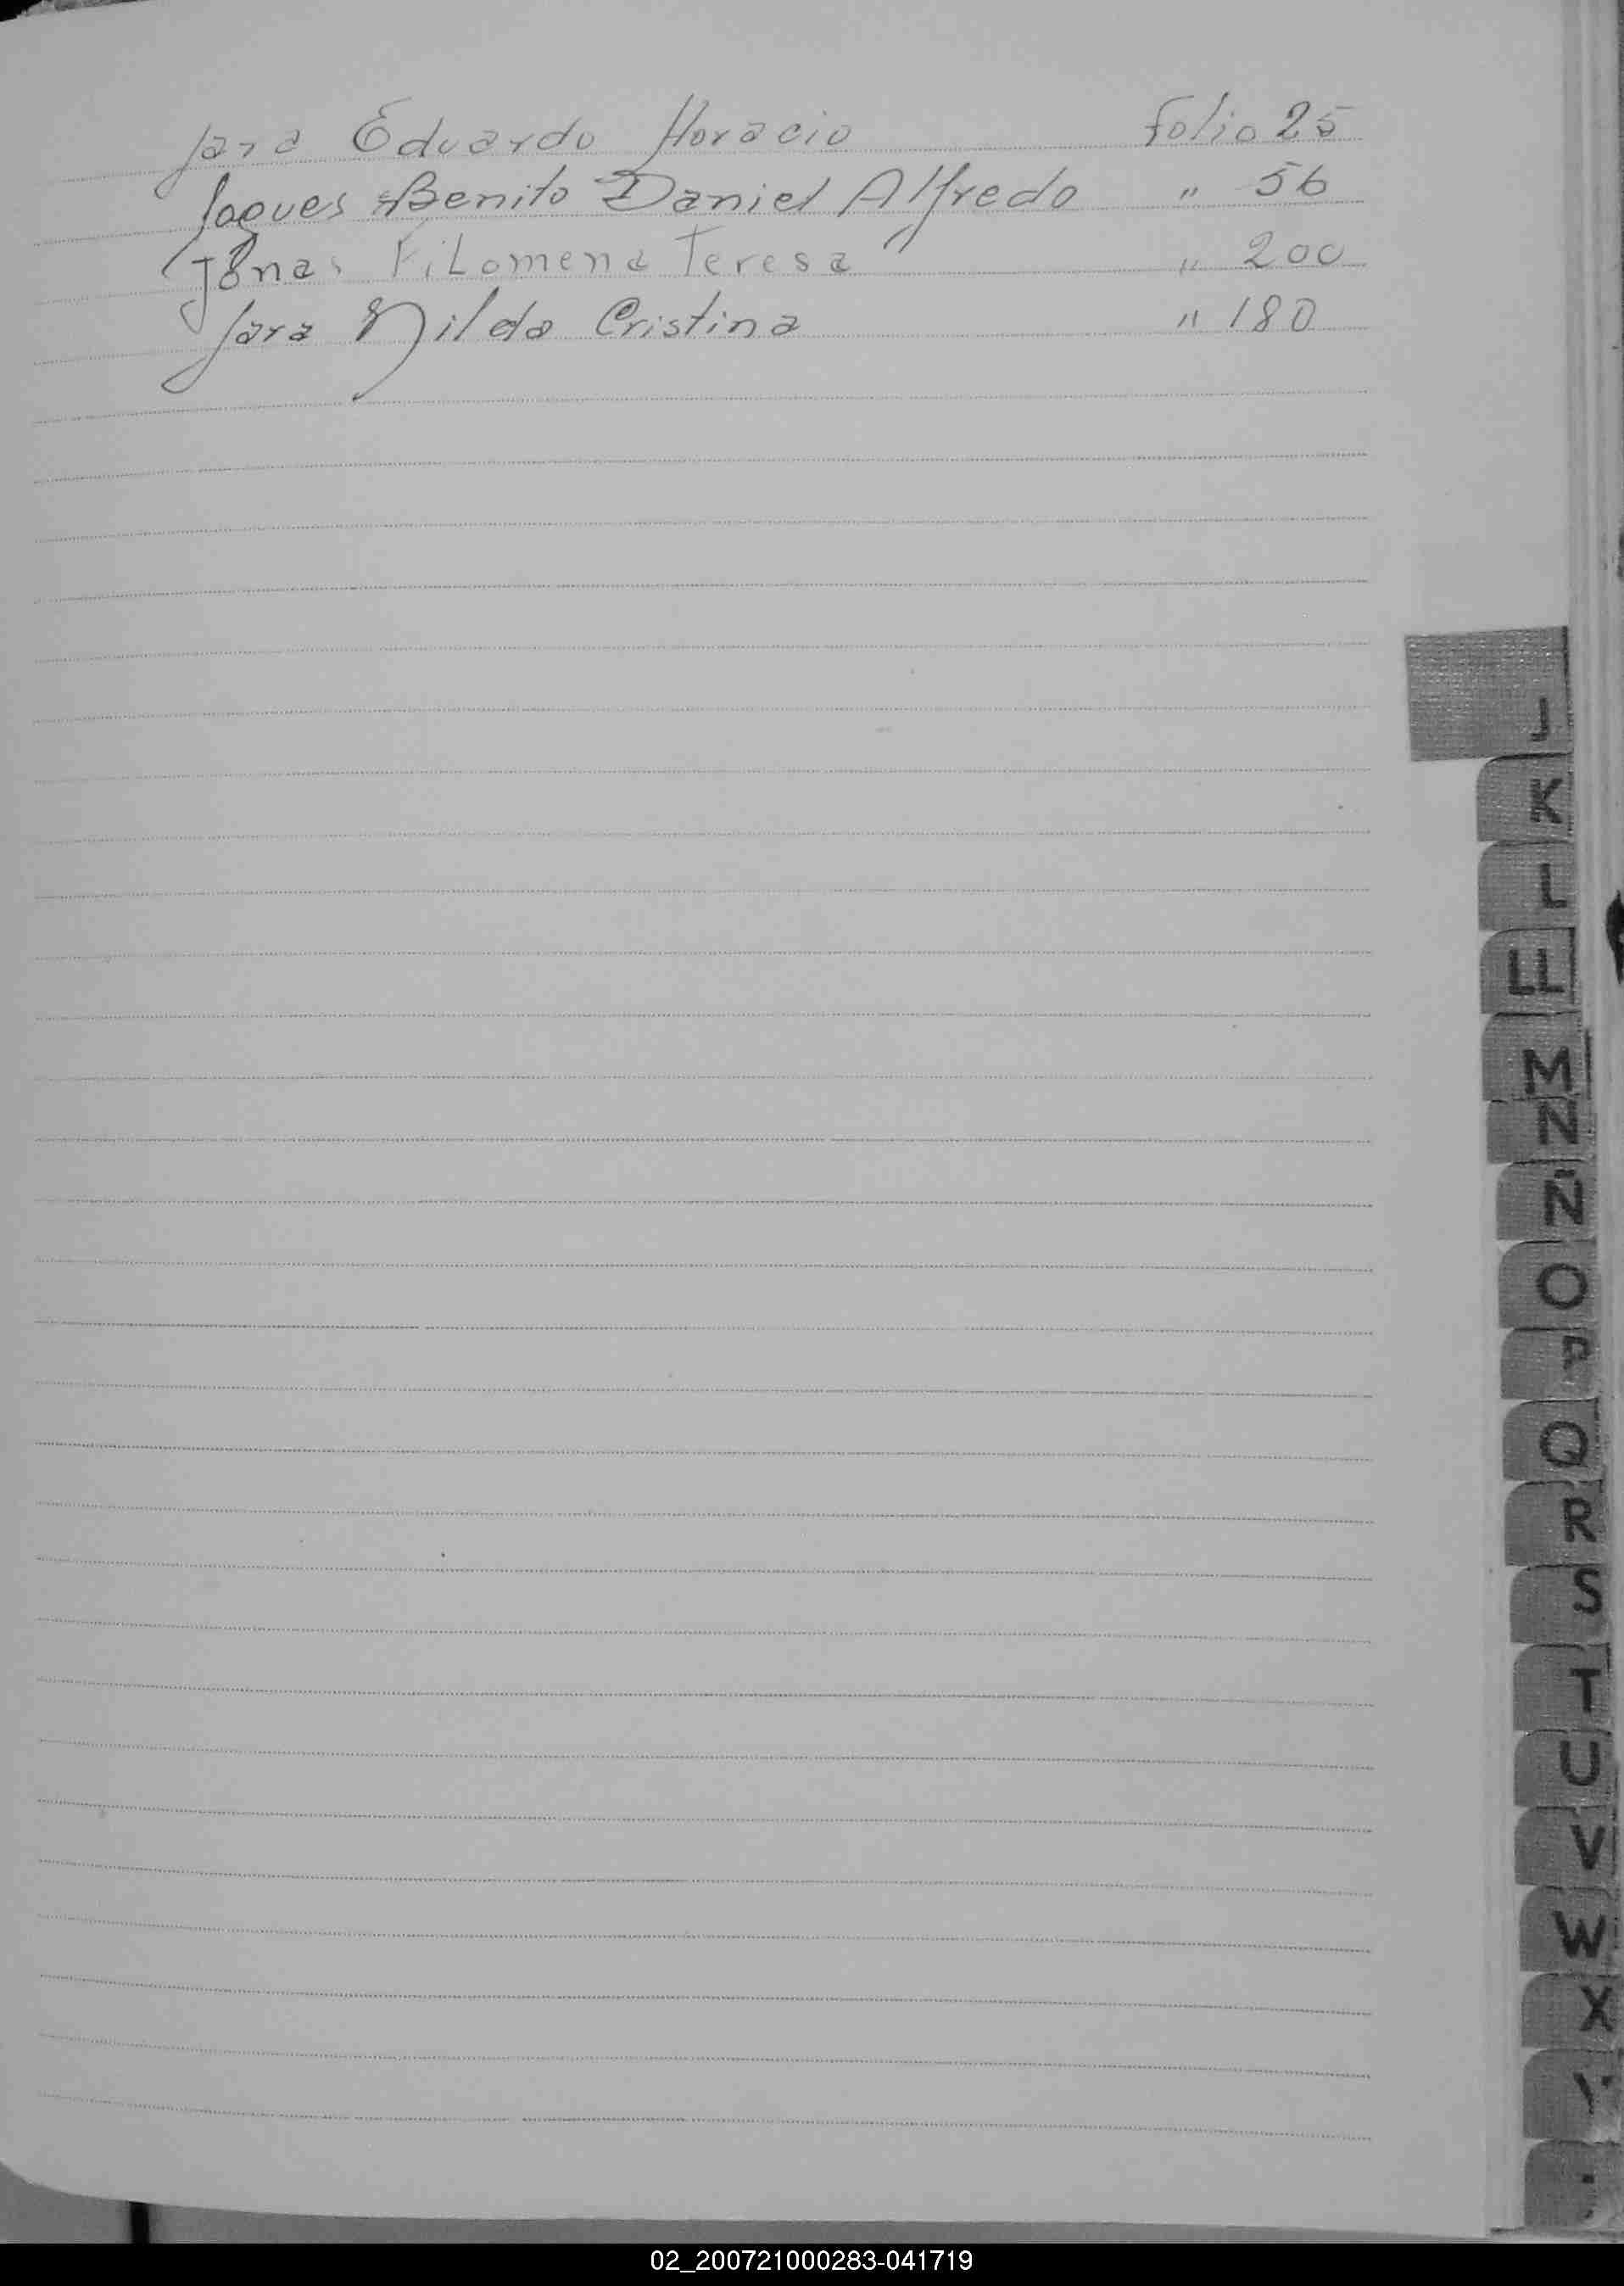 Jara Eduardo Horacio folio 25
Jaques Benito Daniel Alfredo " 56
Jonas Filomena Teresa " 200
Jara Nilda Cristina " 180
J
K
L
LL
M
N
Ñ
O
P
Q
R
S
T
U
V
W
X
Y
02_200721000283-041719